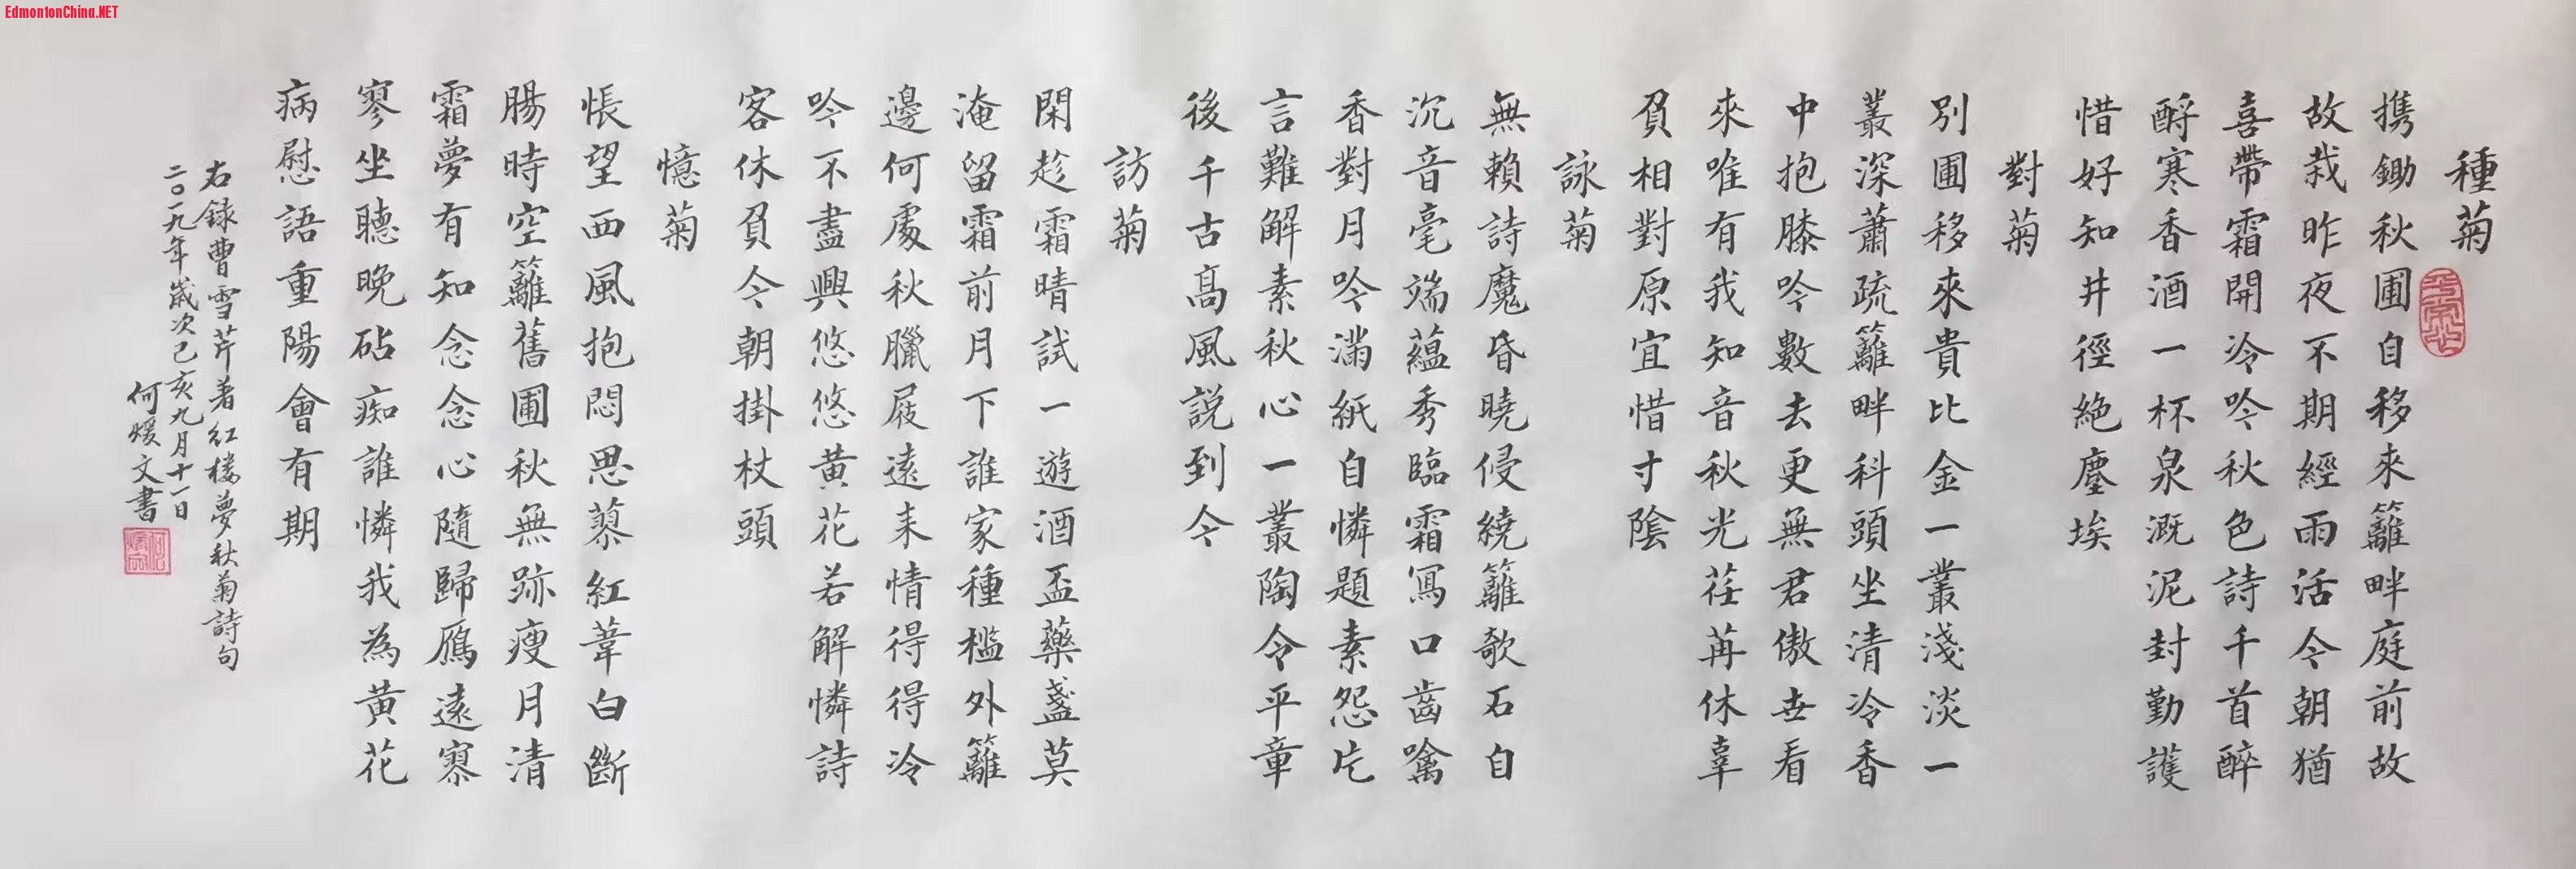 EdmontonChina.NET
種菊
携鋤秋圃自移來籬畔庭前故
故栽昨夜不期經雨活今朝猶
喜帶霜開冷吟秋色詩千首醉
酹寒香酒一杯泉溉泥封勤護
惜好知井徑絶塵埃
對菊
別圃移來貴比金一叢淺淡一
叢深蕭疏籬畔科頭坐清冷香
中抱膝吟數去更無君傲世看
來唯有我知音秋光荏苒休辜
負相對原宜惜寸陰
詠菊
無賴詩魔昏曉侵繞籬欹石自
沉音毫端蘊秀臨霜寫口齒噙
香對月吟滿紙自憐題素怨片
言難解素秋心一叢陶令平章
後千古高風説到今
訪菊
閑趁霜晴試一遊酒盃藥盞莫
淹留霜前月下誰家種檻外籬
邊何處秋臘屐遠來情得得冷
吟不盡興悠悠黄花若解憐詩
客休負今朝掛杖頭
憶菊
悵望西風抱悶思蓼紅葦白斷
腸時空籬舊圃秋無跡瘦月清
霜夢有知念念心隨歸鴈遠寥
寥坐聽晚砧痴誰憐我為黄花
病慰語重陽會有期
右錄曹雪芹著紅楼夢秋菊詩句
二〇一九年歲次己亥九月十一日
何媛文書